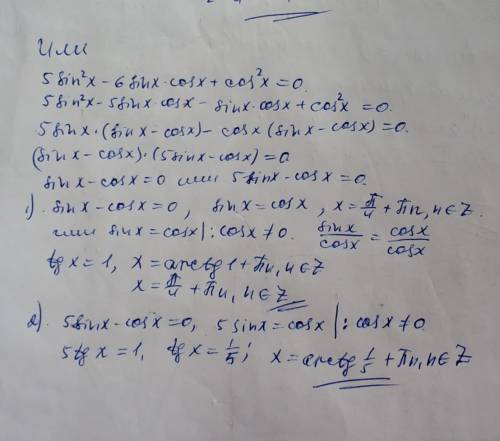 Или
5 sin²x - 6 sinx·cosx + cos²x = 0.
5 sin²x - 5 sinx·cosx - sinx·cosx + cos²x = 0.
5 sinx·(sinx - cosx) - cosx (sinx - cosx) = 0.
(sinx - cosx)·(5 sinx - cosx) = 0.
sinx - cosx = 0 или 5 sinx - cosx = 0.
1). sinx - cosx = 0, sinx = cosx, x = π/4 + πn, n∈Z.
или sinx = cosx |: cosx ≠ 0. sinx/cosx = cosx/cosx
tg x = 1, x = arctg 1 + πn, n∈Z
x = π/4 + πn, n∈Z
2). 5 sinx - cosx = 0, 5 sinx = cosx |: cosx ≠ 0.
5 tg x = 1, tg x = 1/5; x = arctg 1/5 + πn, n∈Z